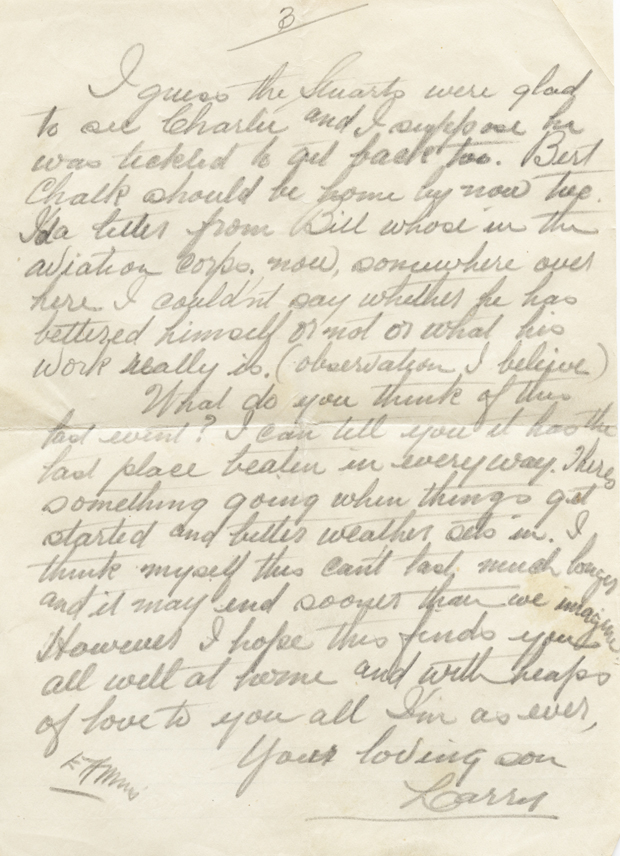 3
I guess the Stuarts were glad
to see Charlie and I suppose he
was tickled to get back too. Bert
Chalk should be home by now too.
I'da letter from Bill whose in the
aviation corps. now, somewhere over
here I could'nt say whether he has
bettered himself or not or what his
work really is. (observation, I believe)
What do you think of this
last event? I can tell you it has the
last place beaten in everyway. Theres
something going when things get
started and better weather sets in. I
think myself this cant last much longer
and it may end sooner than we imagine.
However I hope this finds you
all well at home and with heaps
of love to you all I'm as ever,
Your loving son
Larry